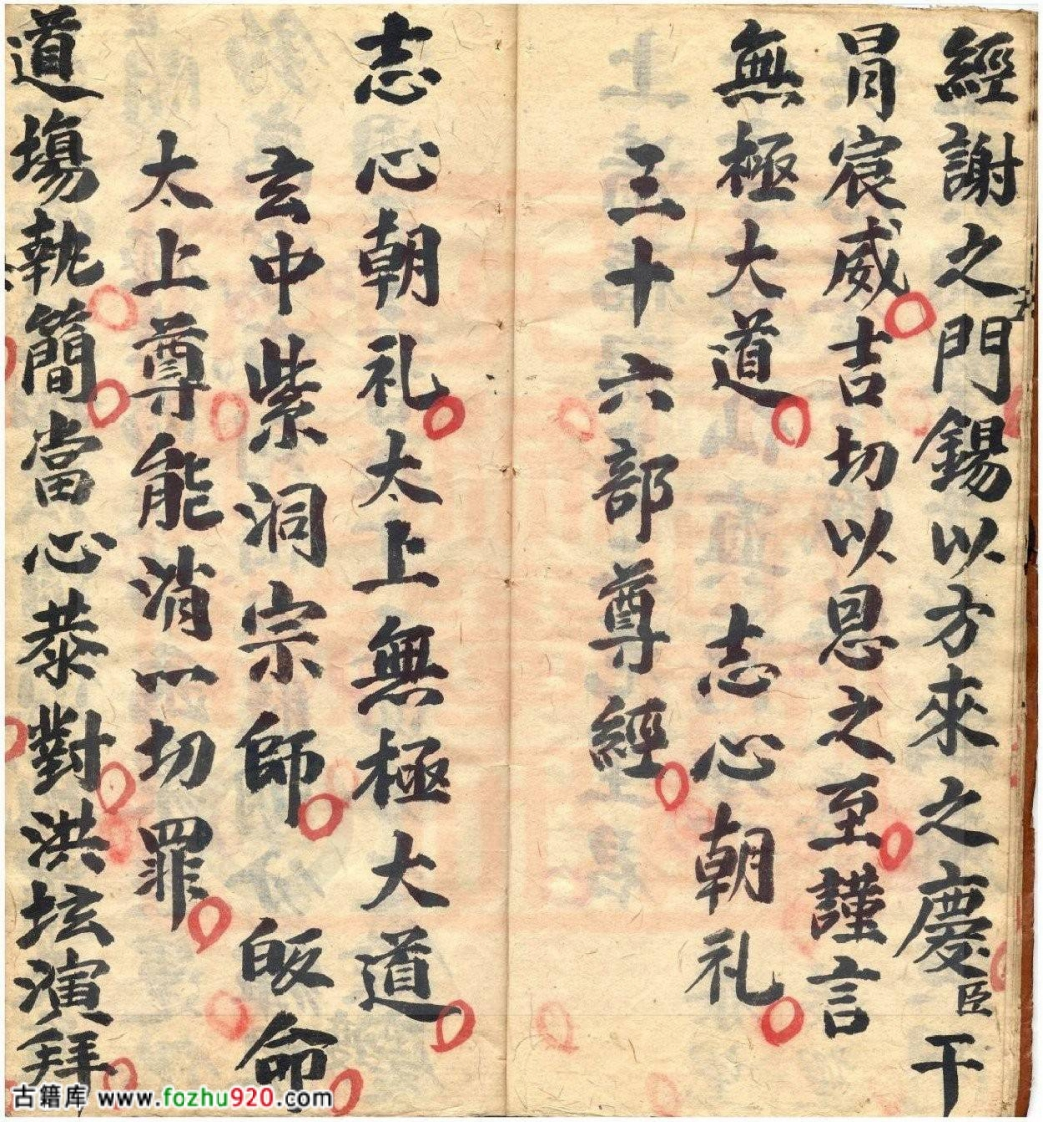 經謝之門錫以方來之慶臣干
冐宸威吉切以恩之至謹言
無極大道　志心朝礼
三十六部尊經
志心朝礼太上無極大道
玄中紫洞宗師　皈命
太上尊能消一切罪
道塲執簡當心恭對洪坛演拜
古籍库 www.fozhu920.com